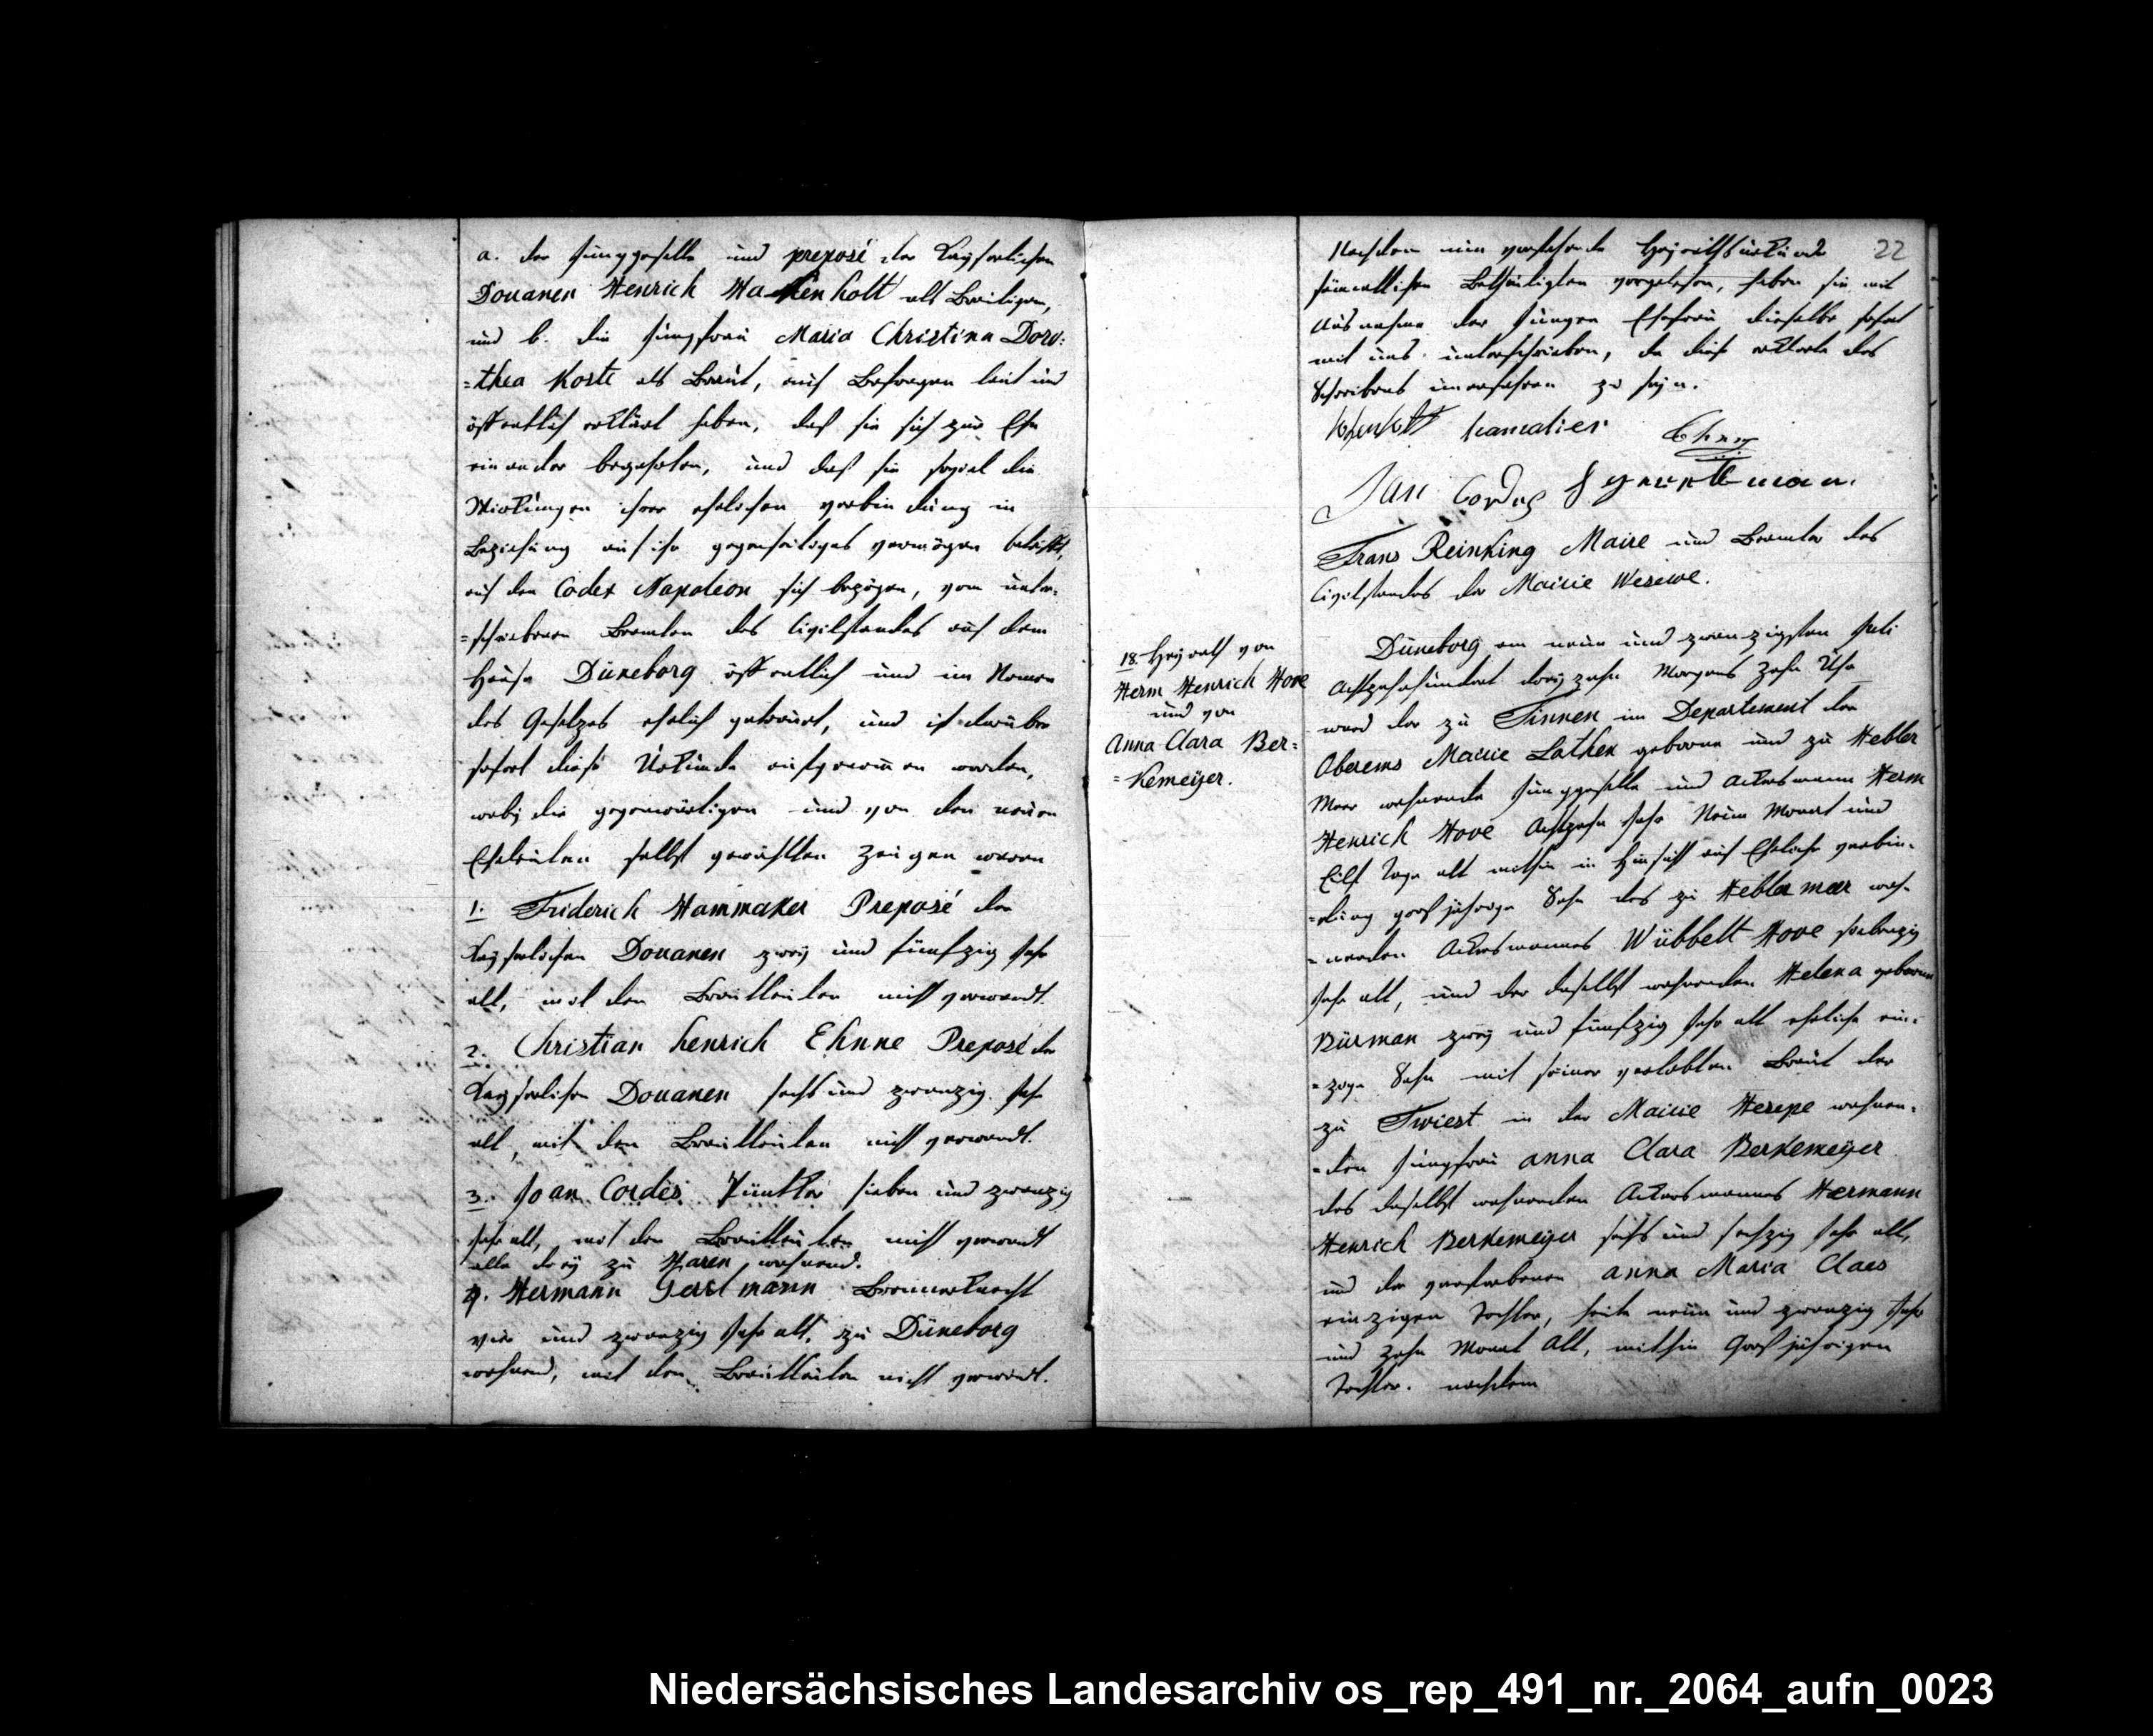 a. der Junggeselle und preposé der Kayserlichen
Douanen Henrich Hakenholt als Bräutigam,
und b. die Jungfrau Maria Christina Doro:
=thea Koste als Braut, auf Befragen laut und
öffentlich erklärt haben, daß sie sich zur Ehe
einander begehrten, und daß sie soviel die
Wirkungen ihrer ehelichen verbindung in
Beziehung auf ihr gegenseitiges vermögen betrifft,
auf den Codex Napoleon sich bezögen, vom unter:
=schriebenen Beamten des Civilstandes auf dem
Hause Düneborg öffentlich und im Namen
des Gesetzes ehelich getrauet, und ist darüber
sofort diese Urkunde aufgenommen worden,
wobey die gegenwärtigen und von den neuen
Eheleuten selbst gewählten Zeugen waren
1. Friderich Hammaker Preposé der
Kayserlichen Douanen zwey und fünfzig Jahr
alt, mit den Brautleuten nicht verwandt.
2. Christian henrich Ehnne Preposé der
Kayserlichen Douanen sechs und zwanzig Jahr
alt, mit den Brautleuten nicht verwandt.
3. Joan Cordes sieben und zwanzig
Jahr alt, mit den Brautleuten nicht verwandt
alle drey zu Haren wohnend.
4. Hermann Gerstmann Brennerknecht
vier und zwanzig Jahr alt, zu Düneborg
wohnend, mit den Brautleuten nicht verwandt.
22
Nachdem nun vorstehende Heyrathsurkunde
sämmtlichen Betheiligten vorgelesen, haben sie mit
Ausnahme der jungen Ehefrau dieselbe sofort
mit uns unterschrieben, da diese erklärte des
Schreibens unerfahren zu seyn.
Ehnne
Jan Cordes
Frans Reinking Maire und Beamter des
Civilstandes der Mairie Wesewe.
18. Heyrath von
Herm Henrich Hove
und von
Anna Clara Ber:
=Kemeijer.
Düneborg am neun und zwanzigsten Juli
Achtzehnhundert dreyzehn Morgens zehn Uhr
ward der zu Tinnen im Departement der
Oberems Mairie Lathen geborene und zu Hebler
Meer wohnende Junggeselle und Ackersmann Herm
Henrich Hove Achtzehn Jahr Neun Monat und
Eilf Tage alt mithin in Hinsicht auf Eheliche verbin:
=dung grosjährige Sohn des zu Heblermeer woh:
=nenden Ackersmannes Wübbelt Hove siebenzig
Jahr alt, und der daselbst wohnenden Helena geborne
Bürman zwey und fünfzig Jahr alt eheliche ein:
=zige Sohn mit seiner verlobten Braut der
zu Twiest in der Mairie Hesepe wohnen:
=den Jungfrau Anna Clara Berkemeijer
des daselbst wohnenden Ackersmannes Hermann
Henrich Berkemeijer sechs und sechzig Jahr alt,
und der verstorbenen Anna Maria Claes
einzigen Tochter, heute neun und zwanzig Jahr
und zehn Monat Alt, mithin Grosjährigen
Tochter. nachdem
Niedersächsisches Landesarchiv os_rep_491_nr._2064_aufn_0023